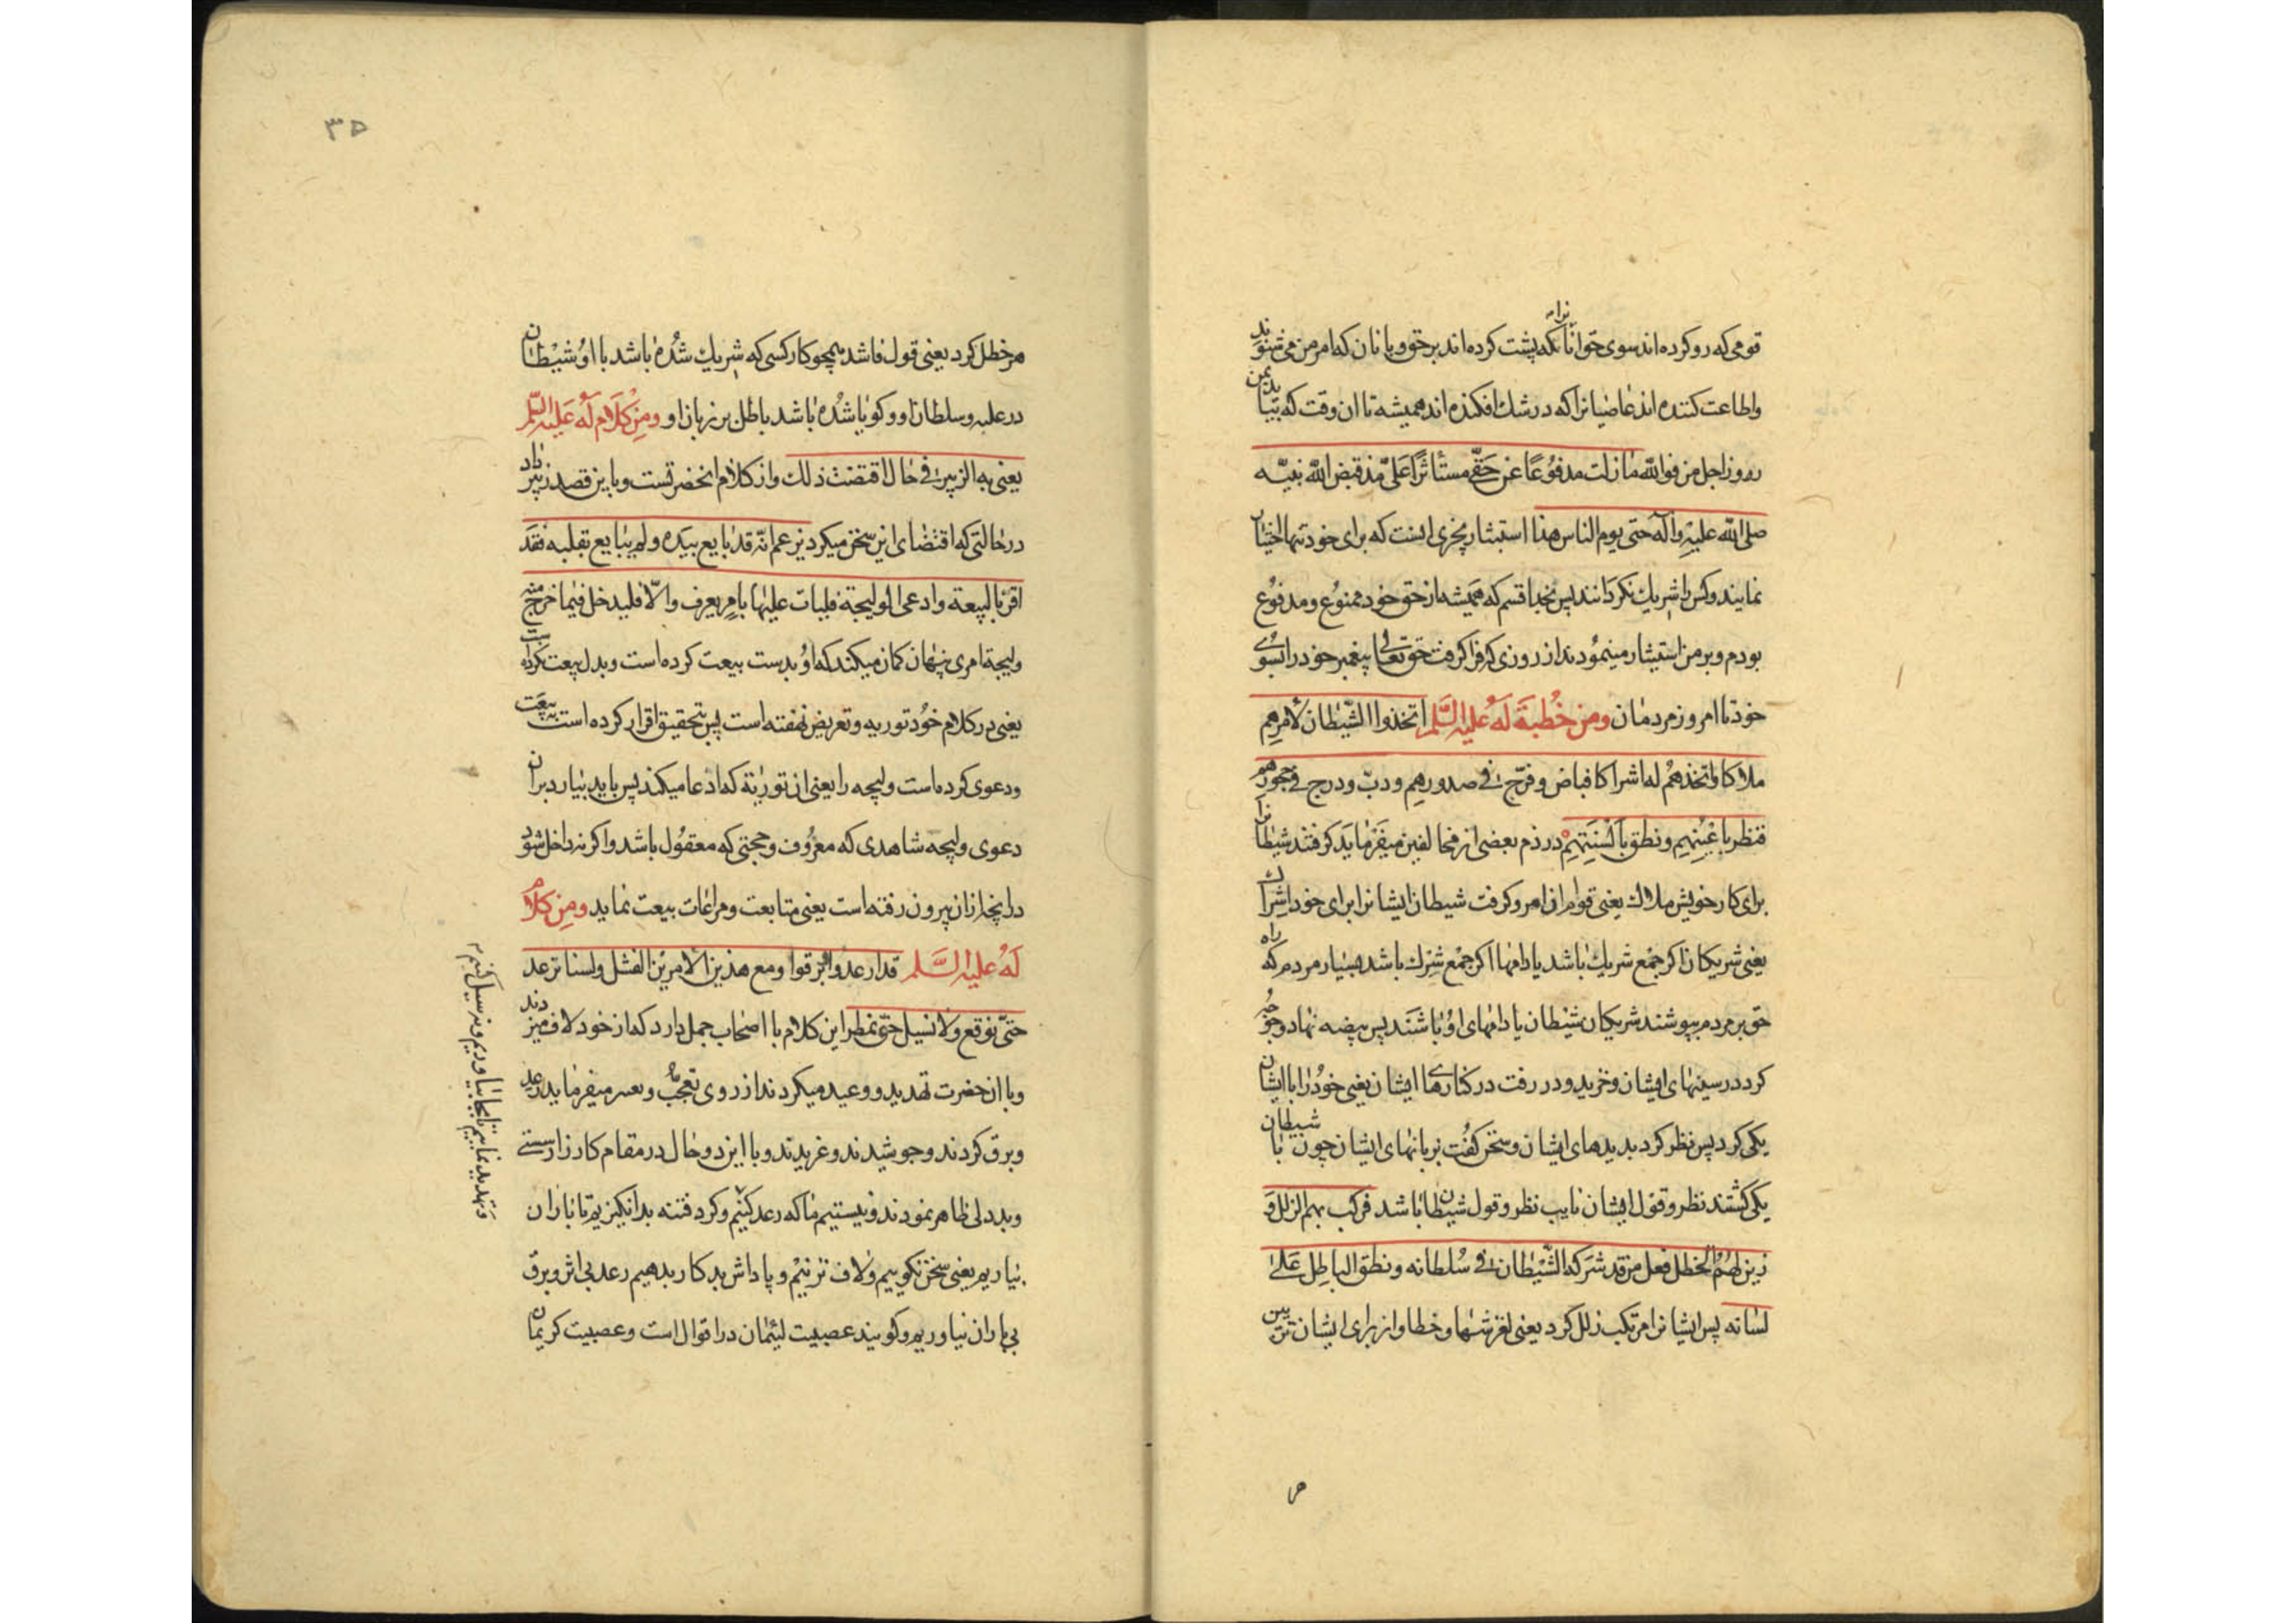 قومی که رو کرده اند سوی حق انانرا که پشت کرده اند بر حق و با نان که امر من می شنوند
واطاعت کننده اند عاصیانرا که در شک افکنده اند همیشه تا ان وقت که بیاید بمن
روز اجل من فوالله مازلت مدفوعا عن حقی مستأثرا علی منذ قبض الله نبیه
صلی الله علیه وآله حتی یوم الناس هذا استیثار بچیزی انست که برای خود تنها اختیار
نمایند وکس را شریک نکردانند پس بخدا قسم که همیشه از حق خود ممنوع و مدفوع
بودم و بر من استیثار مینمودند از روزی که فرا کرفت حق تعالی پیغمبر خود را بسوی
خود تا امروز مردمان ومن خطبة له علیه السلم اتخذوا الشیطان لامرهم
ملاکا واتخذهم له اشراکا فباض وفرخ فی صدورهم ودب ودرج فی حجورهم
فنظر باعینهم ونطق بالسنتهم در ذم بعضی از مخالفین میفرماید که کرفتند شیطانرا
برای کار خویش ملاک یعنی قوام ان امر وکرفت شیطان ایشانرا برای خود اشراک
یعنی شریکان اکر جمع شریک باشد یا دامها اکر جمع شرک باشد بسیار مردم که راه
حق بر مردم بپوشند شریکان شیطان یا دامهای او باشند پس بیضه نهاد وجوجه
کرد در سینهای ایشان وخزید ودر رفت در کنارهاء ایشان یعنی خود را با ایشان
یکی کرد پس نظر کرد بدیدهای ایشان وسخن کفت بزبانهای ایشان چون با شیطان
یکی کشتند نظر وقول ایشان نایب نظر وقول شیطان باشد فرکب بهم الزلل و
زین لهم الخطل فعل من قد شرکه الشیطان فی سلطانه ونطق الباطل علی
لسانه پس ایشانرا مرتکب زلل کرد یعنی لغزشها وخطا واز برای ایشان تزیین
مر
۳۵
مر خطل کرد یعنی قول فاشد همچو کار کسی که شریک شده باشد با او شیطان
در غلبه وسلطان او وکویا شده باشد باطل بر زبان او ومن کلام له علیه السلم
یعنی به الزبیر فی حال اقتضت ذلک واز کلام انحضرتست وباین قصد زبیر دارد
در حالتی که اقتضای این سخن میکرد یزعم انه قد بایع بیده ولم یبایع بقلبه فقد
اقر بالبیعة وادعی الولیجة فلیأت علیها بامر یعرف والا فلیدخل فیما خرج منه
ولیجة امری پنهان کمان میکند که او بدست بیعت کرده است وبدل بیعت نکرده است
یعنی در کلام خود توریه وتعریض نهفته است پس بتحقیق اقرار کرده است به بیعت
ودعوی کرده است ولیجه را یعنی ان توریة که ادعا میکند پس باید بیارد بران
دعوی ولیجه شاهدی که معروف وحجتی که معقول باشد واکر نه داخل شود
در انچه ازان بیرون رفته است یعنی متابعت ومراعات بیعت نماید ومن کلام
له علیه السلم قد ارعدوا وابرقوا ومع هذین الامرین الفشل ولسنا نرعد
حتی نوقع ولا نسیل حتی نمطر این کلام با اصحاب جمل دارد که از خود لاف میزدند
وبا ان حضرت تهدید ووعید میکردند از روی تعجب میفرماید رعد
وبرق کردند وجوشیدند وغریدند وبا این دو حال در مقام کارزار سستی
وبددلی ظاهر نمودند ونیستیم ما که رعد کنیم وکرد فتنه برانکیزیم تا باران
نیاریم یعنی سخن نکوییم ولاف نزنیم وپاداش بد کار بدهیم رعد بی اثر وبرق
بی باران نیاوریم وکویند عصبیت لئیمان در اقوال است وعصبیت کریمان
وتهدید نماییم تا بجا نیاوریم ونه سیل کنیم